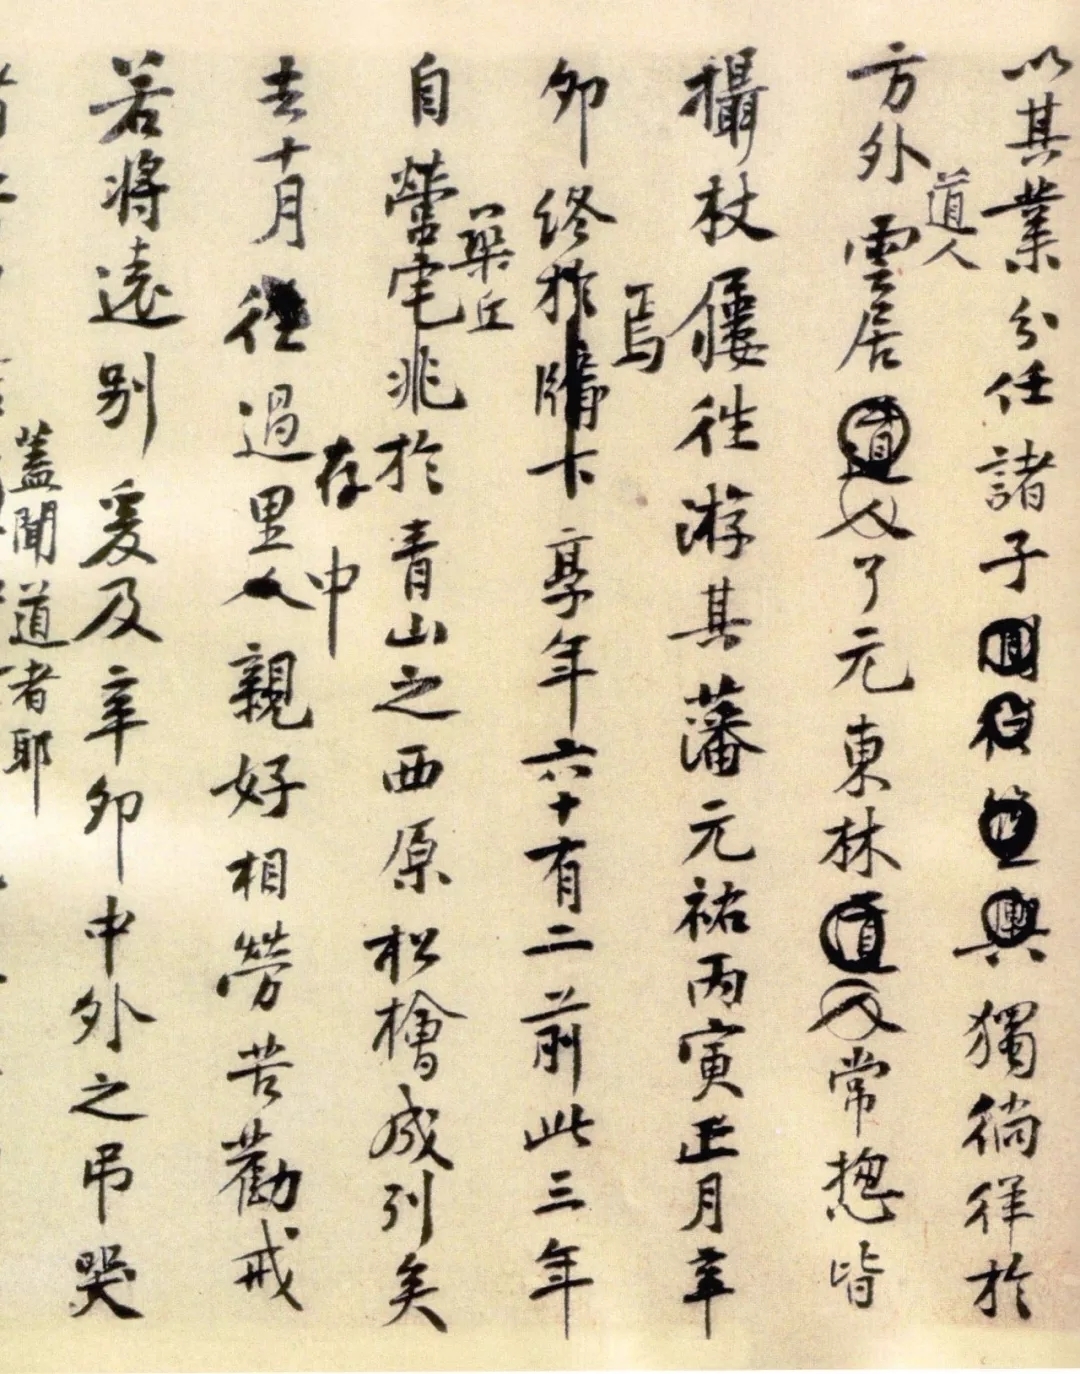 以其業分任諸子獨徜徉於
方外雲居道人了元東林道人常揔皆
道人
攝杖屨往游其藩元祐丙寅正月辛
焉
卯終於牖下享年六十有二前此三年
築丘
自營宅兆於青山之西原松檜成列矣
存中
去十月往過里人親好相勞苦勸戒
若將遠別爰及辛卯中外之弔哭
蓋聞道者耶